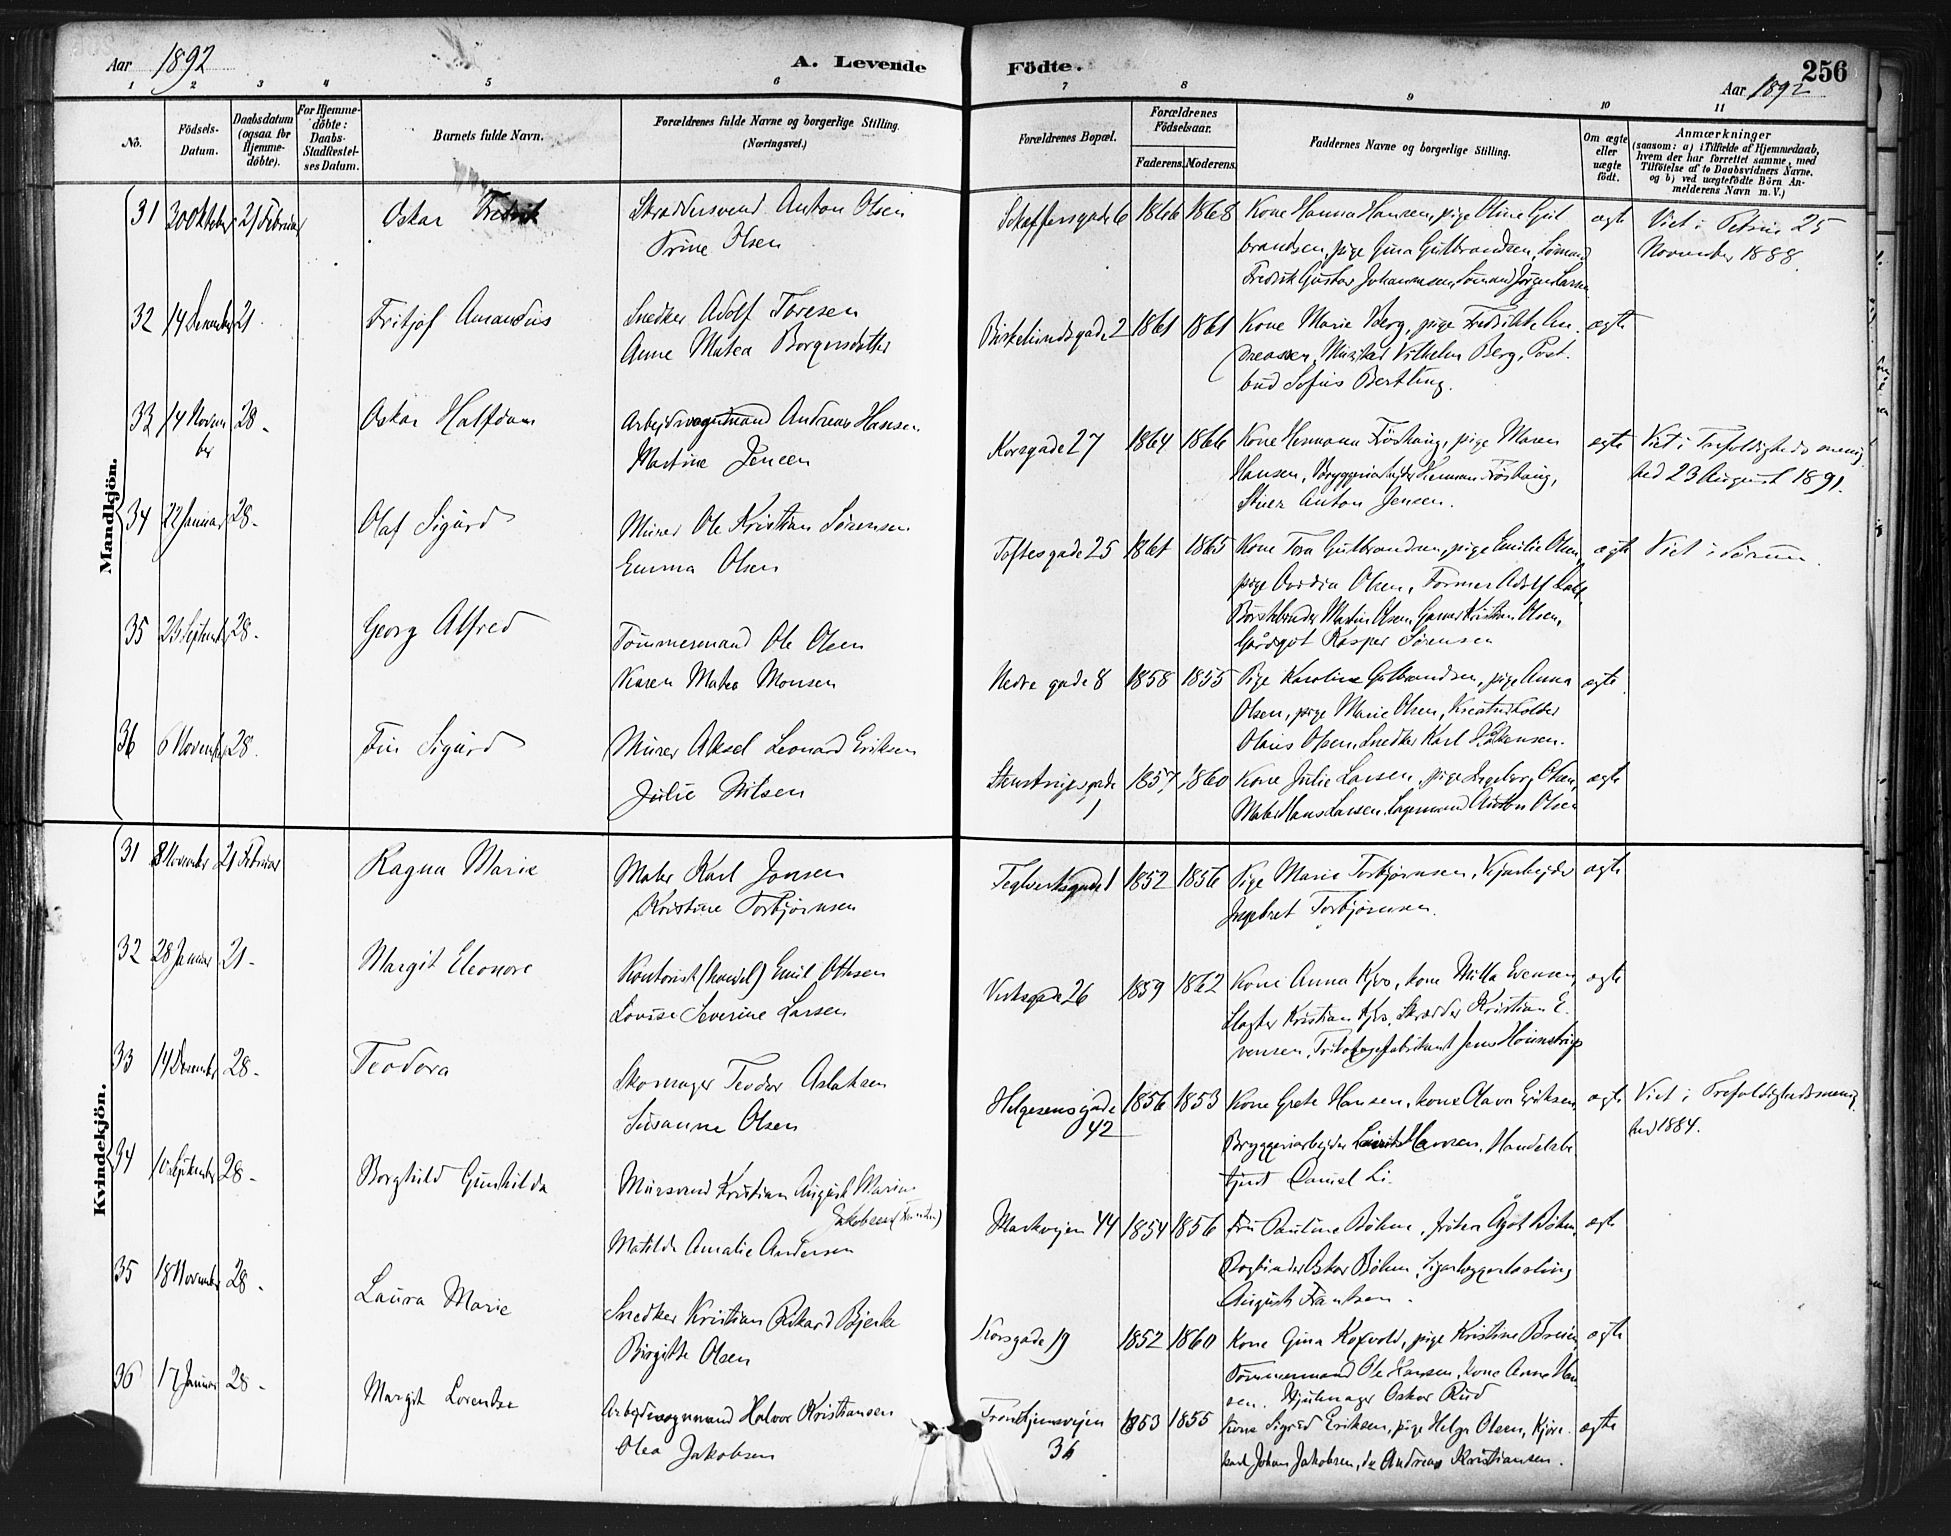 Aar 1892
A. Levende
Födte.
256
Aar 1892
1 2 3 4 5 6 7 8 9 10 11
No.
Födsels-
Datum.
Daabsdatum
(ogsaa for
Hjemme-
döbte).
For Hjemme-
döbte:
Daabs-
Stadfæstel-
ses Datum.
Barnets fulde Navn.
Forældrenes fulde Navne og borgerlige Stilling.
(Næringsvei.)
Forældrenes Bopæl.
Forældrenes
Födselsaar.
Faderens. Moderens.
Faddernes Navne og borgerlige Stilling.
Om ægte
eller
uægte
födt.
Anmærkninger
(saasom: a) i Tilfælde af Hjemmedaab,
hvem der har forrettet samme, med
Tilföielse af to Daabsvidners Navne.
og b) ved uægtefödte Börn An-
melderens Navn m. V.)
Mandkjön.
31 30 Oktober 21 Februar Oskar Fredrik Skræddersvend Anton Olsen
Trine Olsen
Schaffersgade 6 1866 1868 Kone Hanna Hansen, pige Oline Gul
brandsen, pige Gina Gulbrandsen, Sömand
Fredrik Gustav Johannesen, Sömand Jörgen Larsen
ægte Viet i Petrus 25
November 1888.
32 14 December 21 Fritjof Amandus Snedker Adolf Toresen
Anne Matea Borgersdatter
Birkelundsgade 2 1861 1861 Kone Marie Berg, pige Fredrikke An
dreassen, Vilhelm Berg, Post
bud Sofus Bertling.
ægte
33 14 Novem
ber 28 - Oskar Halfdan Arbejdsvognmand Andreas Hansen
Martine Jensen
Korsgade 27 1864 1866 Kone Hermana Fröshaug, pige Maren
Hansen, Bryggeriarbejder Herman Fröshaug,
Anton Jensen.
ægte Viet i Trefoldigheds menig
hed 23 August 1891.
34 22 Januar 28 - Olaf Sigurd Murer Ole Kristian Sörensen
Emma Olsen
Toftesgade 25 1861 1865 Kone Tora Gulbrandsen, pige Emilie Olsen,
pige Ovidia Olsen, Former Adolf
Börstebinder Martin Olsen, Kristian Olsen,
Gårdsgut Kasper Sörensen
ægte Viet i Sörum.
35 September 28 - Georg Alfred Tömmermand Ole Olsen
Karen Matea Monsen
Nedre gade 8 1858 1855 Pige Karoline Gulbrandsen, pige Anna
Olsen, pige Marie Olsen, Kreaturholder
Olaus Olsen, Snedker Karl
ægte
36 6 November 28. Fin Sigurd Murer Aksel Leonard Eriksen
Julie Nilsen
Stenstrupsgade
1 1857 1860 Kone Julie Larsen, pige Ingeborg Olsen,
Maler Hans Larsen, Anton Olsen
ægte
Kvindekjön.
31 8 November 21 Februar Ragna Marie Maler Karl Jonsen
Kristine Torbjörnsen
Teglverksgade 1 1852 1856 Pige Marie Torbjörnsen, Vejarbejder
Ingebret Torbjörnsen.
ægte
32 28 Januar 21 - Margit Eleonore Kontorist (handel) Emil Ottesen
Lovise Severine Larsen
Verksgade 26 1859 1862 Kone Anna Kjos, kone Milla Evensen,
Slagter Kristian Kjos, Skrædder Kristian E
vensen, Trikotagefabrikant Jens
ægte
33 14 December 28 - Teodora Skomager Teodor Aslaksen
Susanne Olsen
Helgesensgade
42 1856 1853 Kone Grete Hansen, kone Olava Eriksen,
Bryggeriarbejder Hansen, Handelsbe
tjent Daniel Li.
ægte Viet i Trefoldighedsmenig
hed 1884.
34 10 September 28 - Borghild Gunhilda Mursvend Kristian August Marin
Jakobsen (Frantsen)
Matilde Amalie Andersen
Markvejen 44 1854 1856 Fru Pauline Böhm, fröken Ågot Böhm,
Bogbinder Oskar Böhm,
August Frantsen.
ægte
35 18 November 28 - Laura Marie Snedker Kristian Rikard Bjerke
Birgitte Olsen
Korsgade 19 1852 1860 Kone Gina Kopvold, pige Kristine Bruun,
Tömmermand Ole Hansen, kone Anne Han
sen, Hjulmager Oskar Rud
ægte
36 17 Januar 28 - Margit Lorentze Arbejdsvognmand Halvor Kristiansen
Olea Jakobsen
Trondhjemsvejen
36 1853 1855 Kone Sigrid Eriksen, pige Helga Olsen, Kjöre
karl Johan Jakobsen, do Andreas Kristiansen.
ægte